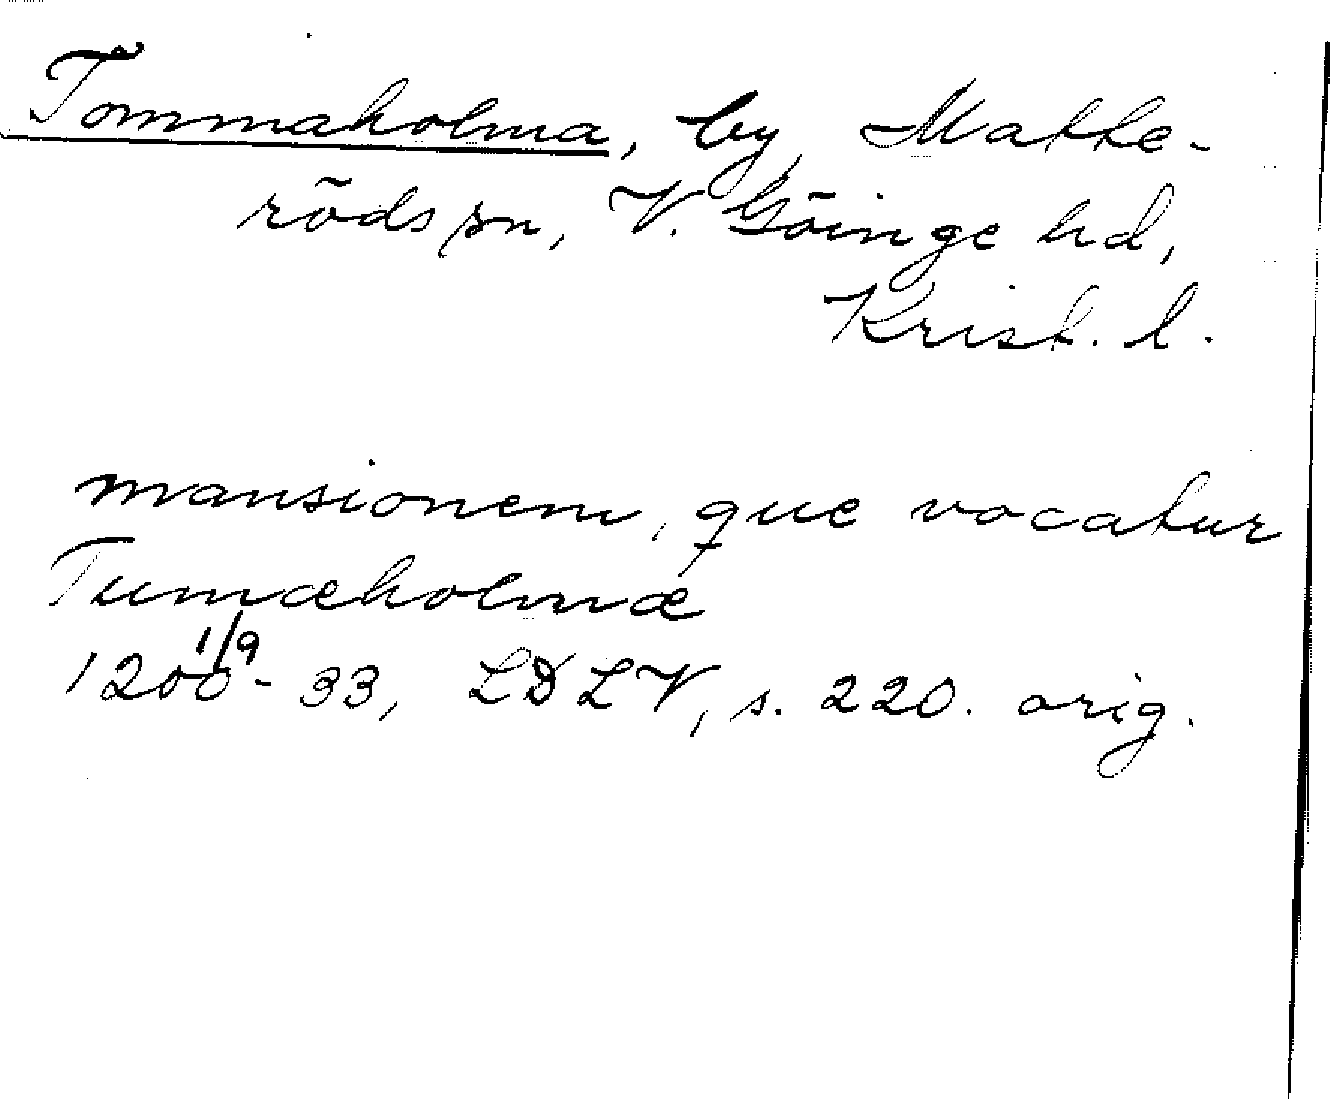 Tommaholma, by, Matte-
röds sn, V. Göinge hd,
Krist. l.
mansionem, que vocatur
Tumæholmæ
1200 1/9 - 33, LDLV, s. 220. orig.